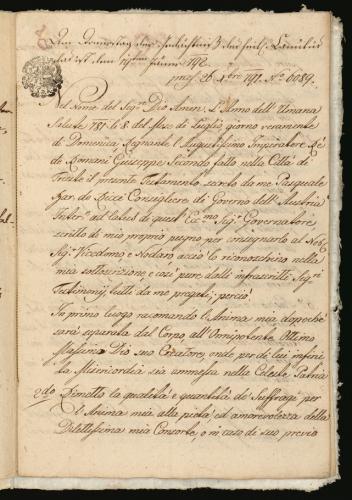 Den Donnerstag der
das ist den 19ten Jäner 792.
præs 26 Xbre 791. No 6089.
Nel Nome del Sigre Dio Amen. L'Anno dell'Umana
Salute 781 li 8. del Mese di Luglio, giorno veramente
di Domenica, Regnante l'Augustissimo Imperatore Rè
de Romani Giuseppe Secondo fatto nella Città di
Trieste il presente Testamento scritto da me Pasquale
de Ricci Consigliere di Governo dell'Austria
Inter. ad latus di quest' Eccmo Sigr Governatore
scritto di mio proprio pugno per consegnarlo al Nob.
Sigr Vicedomo, e Nodaro acciò lo riconoschino nella
mia sottoscrizione, e così pure dalli infrascritti Sigri
Testimonij tutti da me pregati; perciò
In primo luogo racomando l'Anima mia dopoché
sarà separata dal Corpo all' Omnipotente Ottimo
Massimo Dio suo Creatore, onde per di lui infini.
ta Misericordia sia ammessa nella Celeste Patria
2do Rimetto la qualità e quantità de' Suffragi per
l'Anima mia alla pietà, ed amorevolezza della
Dilettissima mia Consorte, o in caso di suo previo